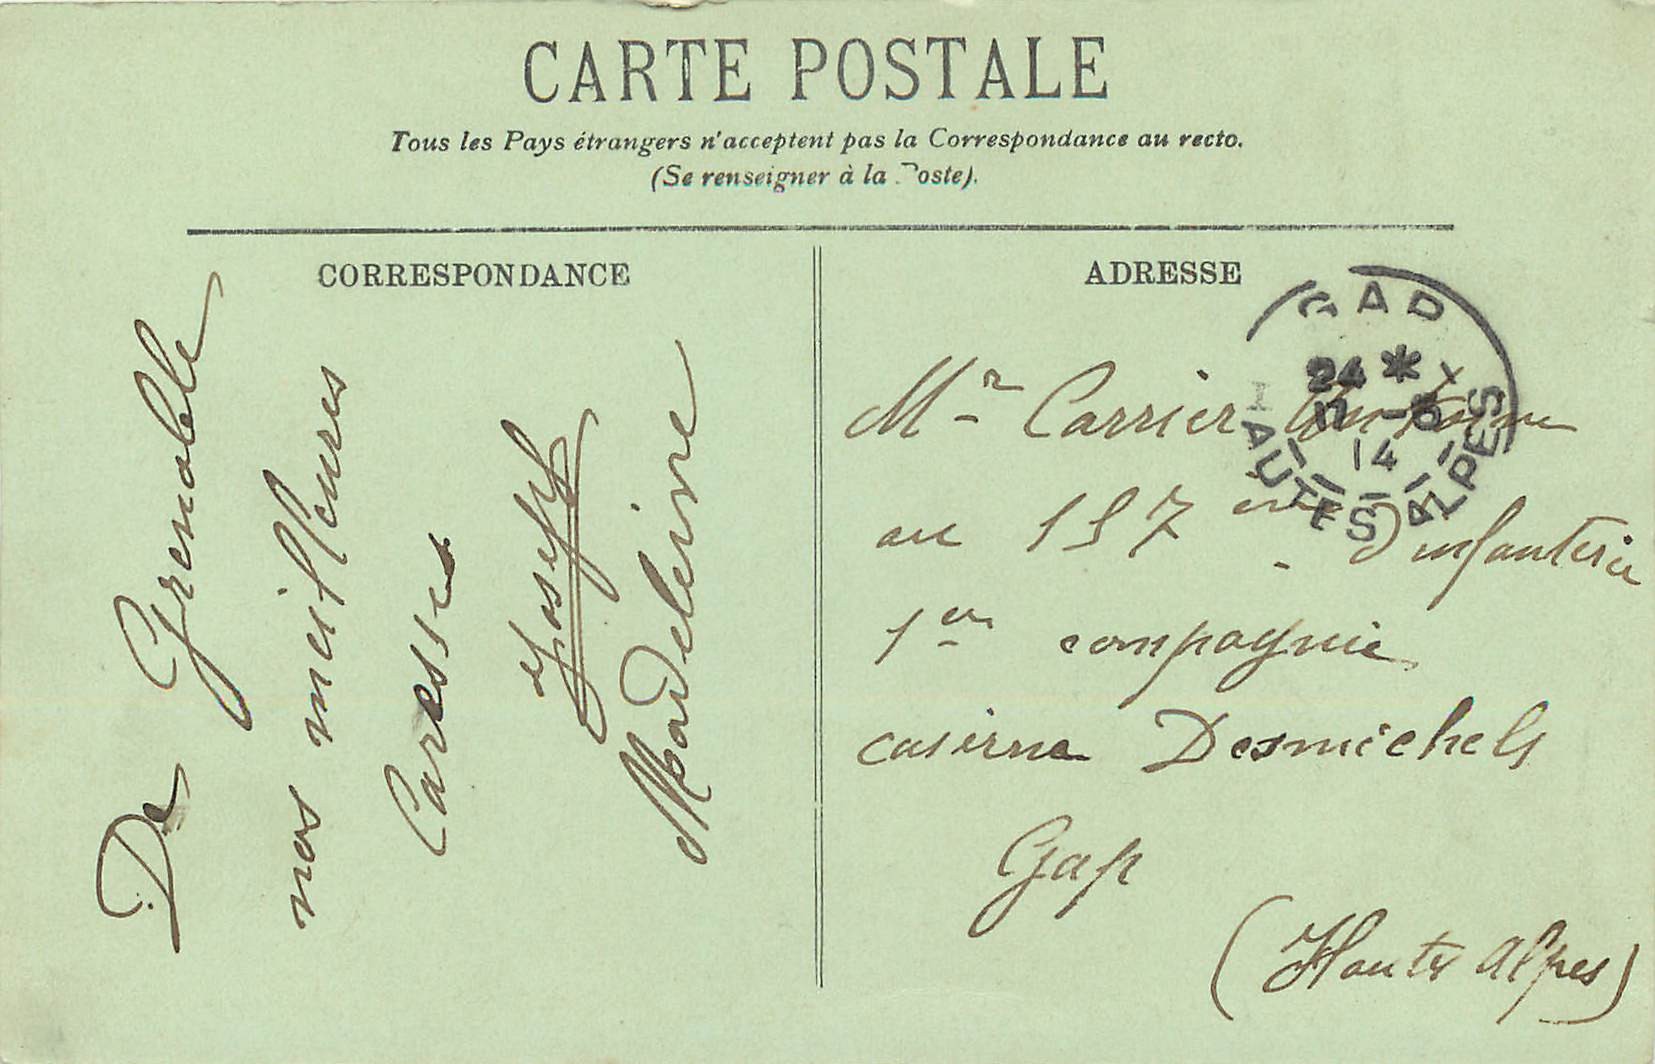 CARTE POSTALE
Tous les Pays étrangers n'acceptent pas la Correspondance au recto.
(Se renseigner à la Poste).
CORRESPONDANCE
De Grenoble
nos meilleures
Caresses
Joseph
Madeleine
ADRESSE
GAP
24 *
14
HAUTES ALPES
Mr Carrier Antoine
au 157 ème d'infanterie
1ère compagnie
caserne Desmichels
Gap
(Hautes Alpes)